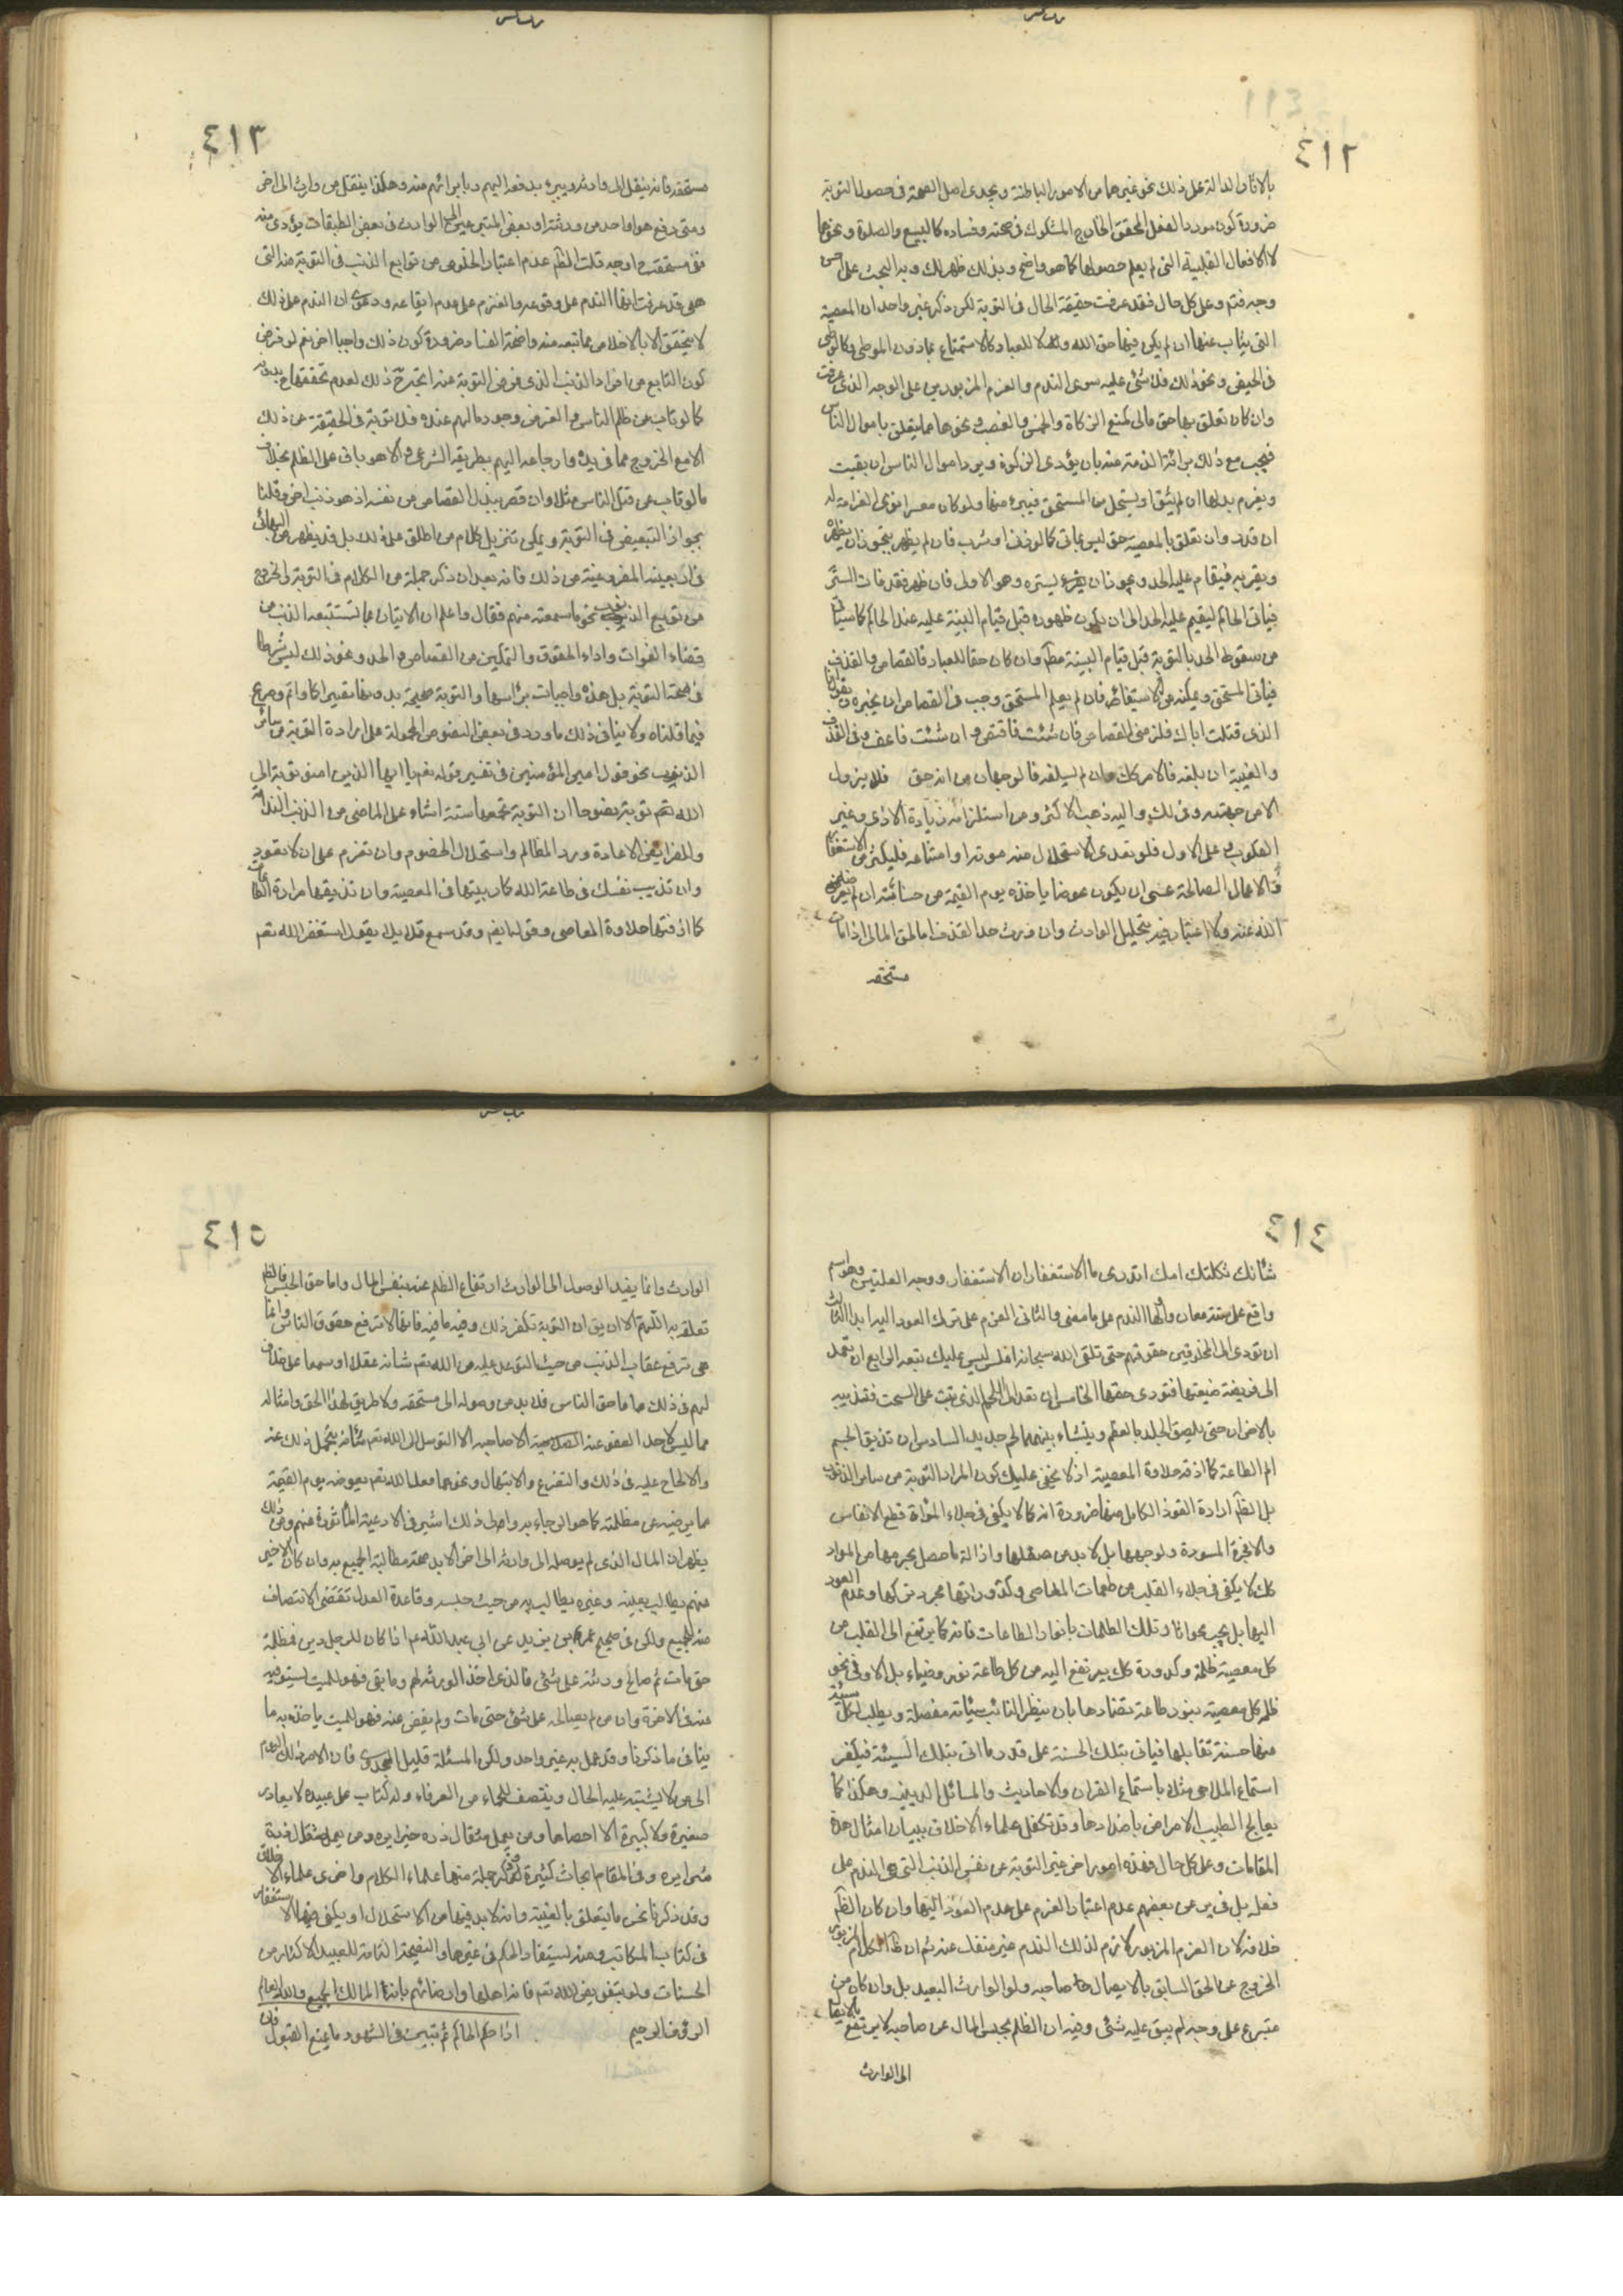 ٤١٢
بالاثار الدالة على ذلك نحو غيرها من الامور الباطنة ويجدى اصل الصحة فى حصول التوبة
ضرورة كون مورد الفعل المحقق الخارج المشكوك فى صحته وفساده كالبيع والصلوة ونحوهما
لا الافعال القلبية التى لم يعلم حصولها كما هو واضح وبذلك ظهر لك وبه البحث على احسن
وجه فتم وعلى كل حال فقد عرفت حقيقة الحال فى التوبة لكن ذكر غير واحد ان المعصية
التى يتاب عنها ان لم يكن فيها حق الله ولا للعباد كالاستمتاع بمادون الموطى وكالوطى
فى الحيض ونحو ذلك فلا شئ عليه سوى الندم والعزم المزبورين على الوجه الذى عرفت
وان كان تعلق بها حق مالى كمنع الزكاة والخمس والغصب ونحوها مما يتعلق باموال الناس
فيجب مع ذلك برائة الذمة عنه بان يؤدى الزكوة ويرد اموال الناس ان بقيت
ويغرم بدلها ان لم تبق او يستحل من المستحق فيبرئه منها ولو كان معسرا نوى الغرامة له
ان قدر وان تعلق بالمعصية حق ليس بمالى كما لو زنى او شرب فان لم يظهر يجوز ان يظهر
ويقر به فيقام عليه الحد ويجوز ان يستره وهو الاولى فان ظهر فقد فات الستر
فياتى الحاكم ليقيم عليه الحد الى ان يكون ظهوره قبل قيام البينة عليه عند الحاكم كما سياتى
من سقوط الحد بالتوبة قبل قيام البينة مطلقا وان كان حقا للعباد كالقصاص والقذف
فيأتى المستحق ويمكنه من الاستيفاء فان لم يعلم المستحق وجب فى القصاص ان يخبره ويقول انا
الذى قتلت اباك فلزمنى القصاص فان شئت فاقتص وان شئت فاعف وفى القذف
والغيبة ان بلغه فالامر كك وان لم يبلغه فالوجهان من انه حق فلا يزول
الا من جهته وفى ذلك واليه ذهب الاكثر ومن استلزامه زيادة الاذى ووغر
القلوب وعلى الاول فلو تعذر الاستحلال منه موته او امتناعه فليكثر من الاستغفار
والاعمال الصالحة عسى ان يكون عوضا ياخذه يوم القيمة من حسناته ان لم يعوضه
الله عنه ولا اعتبار فيه بتحليل الوارث وان ورث حد القذف اما الحق المالى اذا مات
مستحقه
٤١٣
مستحقه فانه ينتقل الى وارثه ويبرء بدفعه اليهم وبابرائهم منه وهكذا ينتقل من وارث الى اخر
ومتى دفع هو او احد من ورثته او بعض المتبرعين الى الوارث فى بعض الطبقات يؤدى منه
ففى مستحقه اوجه قلت الظاهر عدم اعتبار الخلوص من توابع الذنب فى التوبة منه التى
هى قد عرفت انها الندم على وقوعه والعزم على عدم ايقاعه ودعوى ان الندم على ذلك
لا يتحقق الا بالاخلاص مما تبعه منه واضحة الفساد ضرورة كون ذلك واجبا اخر نعم لو فرض
كون التابع من افراد الذنب الذى فرض التوبة عنه اعتبر ح ذلك لعدم تحققها بدونه
كما لو تاب عن ظلم الناس والفرض وجود مالهم عنده فلا توبة فى الحقيقة عن ذلك
الا مع الخروج عما فى يده وارجاعه اليهم بطريقه الشرعى والا هو باق على الظلم بخلاف
ما لو تاب عن قتل الناس مثلا وان قصر ببذل القصاص من نفسه اذ هو ذنب اخر وقلنا
بجواز التبعيض فى التوبة ويمكن تنزيل كلام من اطلق على ذلك بل قد يظهر من البهائى
فى اربعينه المفروغية من ذلك فانه بعد ان ذكر جملة من الكلام فى التوبة والخروج
من توبيع الذنوب نحو ما سمعته منهم فقال واعلم ان الاتيان بما تستتبعه الذنب من
قضاء الفوات واداء الحقوق والتمكين من القصاص والحد ونحو ذلك ليس شرطا
فى صحة التوبة بل هذه واجبات برأسها والتوبة صحيحة بدونها وبها تصير اكمل واتم وصريح
فيما قلناه ولا ينافى ذلك ما ورد فى بعض النصوص المحمولة على ارادة التوبة من سائر
الذنوب نحو قول امير المؤمنين فى تفسير قوله تعم يا ايها الذين امنوا توبوا الى
الله تعم توبة نصوحا ان التوبة تجمعها ستة اشياء على الماضى من الذنب الندامة
وللفرايض الاعادة ورد المظالم واستحلال الخصوم وان تعزم على ان لا تعود
وان تذيب نفسك فى طاعة الله كما ربيتها فى المعصية وان تذيقها مرارة الطاعات
كما اذقتها حلاوة المعاصى وقوله ايضا وقد سمع قائلا يقول استغفر الله تعم
٤١٤
ثكلتك امك اتدرى ما الاستغفار ان الاستغفار درجه العليين وهو اسم
واقع على ستة معان اولها الندم على ما مضى والثانى العزم على ترك العود اليه ابدا الثالث
ان تؤدى الى المخلوقين حقوقهم حتى تلقى الله سبحانه املس ليس عليك تبعة الرابع ان تعمد
الى فريضة ضيعتها فتؤدى حقها الخامس ان تعمد الى اللحم الذى نبت على السحت فتذيبه
بالاحزان حتى يلصق الجلد بالعظم وينشاء بينهما لحم جديد السادس ان تذيق الجسم
الم الطاعة كما اذقته حلاوة المعصية اذ لا يخفى عليك كون المراد التوبة من سائر الذنوب
بل الظاهر ارادة الفرد الكامل منها ضرورة انه كما لا يكفى فى جلاء المراة قطع الانفاس
والابخرة المسودة لوجهها بل لا بد من صقلها وازالة ما حصل بجرمها من المواد
كك لا يكفى فى جلاء القلب من ظلمات المعاصى وكدوراتها مجرد تركها وعدم العود
اليها بل يجب محو اثار تلك الظلمات بانوار الطاعات فانه كما يرتفع الى القلب من
كل معصية ظلمة وكدورة كك يرتفع اليه من كل طاعة نور وضياء بل الاولى محو
ظلمة كل معصية بنور طاعة تضادها بان ينظر التائب سيئاته مفصلة ويطلب لكل سيئة
منها حسنة تقابلها فياتى بتلك الحسنة على قدر ما اتى بتلك السيئة فيكفر
استماع الملاهى مثلا باستماع القران والاحاديث والمسائل الدينية وهكذا كما
يعالج الطبيب الامراض باضدادها وقد تكفل علماء الاخلاق ببيان امثال هذه
المقامات وعلى كل حال فهذه امور اخر غير التوبة عن نفس الذنب التى هى الندم على
فعله بل فى عن بعضهم عدم اعتبار العزم على عدم العود اليها وان كان الظاهر
خلافه لان العزم المزبور لازم لذلك الندم غير منفك عنه ثم ان ظاهر الكلام المزبور
الخروج عن الحق السابق بالايصال الى صاحبه ولو الوارث البعيد بل وان كان من
متبرع على وجه لم يبق عليه شئ وفيه ان الظلم بحبس المال عن صاحبه لا يرتفع بالايصال
الى الوارث
٤١٥
الوارث وانما يفيد الوصول الى الوارث ارتفاع الظلم عنه بنفس المال واما حق الحبس فالظلم
تعلقه به اللهم الا ان يق ان التوبة تكفر ذلك وفيه ما فيه فانها لا ترفع حقوق الناس وانما
هى ترفع عقاب الذنب من حيث التوعد عليه من الله تعم شانه عقلا او سمعا على خلاف
لهم فى ذلك واما حق الناس فلا بد من وصوله الى مستحقه ولا طريق لهذا الحق وامثاله
مما ليس لاحد العفو عنه الا صاحبه الا التوسل الى الله تعم شانه بتحمل ذلك عنه
والالحاح عليه فى ذلك والتضرع والابتهال ونحوهما فلعل الله تعم يعوضه يوم القيمة
مما يرضيه عن مظلمته كما هو الرجاء به والى ذلك اشير فى الادعية المأثورة عنهم ومن ذلك
يظهر ان المال الذى لم يوصله الى وارثه الى اخر الابد صحة مطالبة الجميع به وان كان الاخير
منهم يطالب بعينه وغيره يطالب به من حيث حبسه وقاعدة العدل تقتضى الانتصاف
منه للجميع ولكن فى صحيح عمر بن يزيد عن ابى عبد الله عم اذا كان للرجل دين فمطله
حتى مات ثم صالح ورثته على شئ فالذى اخذ الورثة لهم وما بقى فهو للميت يستوفيه
منه فى الاخرة وان هو لم يصالحه على شئ حتى مات ولم يقض عنه فهو للميت ياخذه به ما
ينافى ما ذكرنا وقد عمل به غير واحد ولكن المسئلة قليلة الجدوى فان الامر ذلك اليوم
الى من لا يشتبه عليه الحال وينتصف للجماء من القرناء وله كتاب على عبيده لا يغادر
صغيرة ولا كبيرة الا احصاها ومن يعمل مثقال ذرة خيرا يره ومن يعمل مثقال ذرة
شرا يره وفى المقام ابحاث كثيرة ذكر جملة منها علماء الكلام واخرى علماء الاخلاق
وقد ذكرنا نحن ما يتعلق بالغيبة وانه لا بد فيها من الاستحلال او يكفى فيها الاستغفار
فى كتاب المكاسب ومنه يستفاد الحكم فى غيرها والنصيحة التامة للعبيد الاكثار من
الحسنات ولو بتفويض الله تعم فانه اهلها وارضائهم بانه المالك الجميع والله العالم
الرؤف الرحيم اذا حكم الحاكم ثم تبين فى الشهود ما يمنع القبول فان